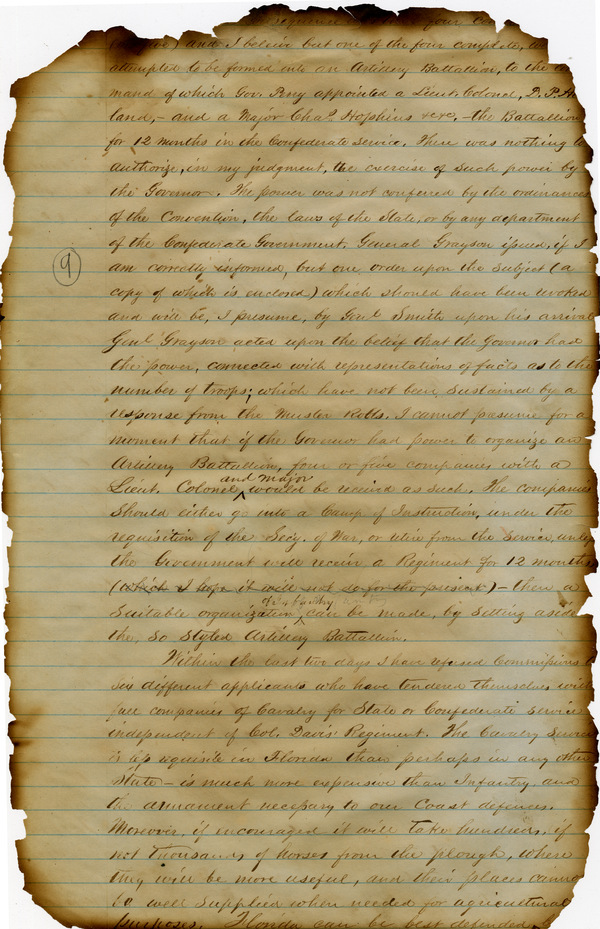 four
and I believe but one of the four complete,
attempted to be formed into an Artillery Battallion, to the
mand of which Gov. Perry appointed a Lieut. Colonel, D. P.
land, - and a Major Chas. Hopkins &c &c. - the Battallion
for 12 months in the Confederate Service. There was nothing to
Authorize, in my judgment, the exercise of such power by
the Governor. The power was not conferred by the ordinances
of the Convention, the laws of the State, or by any department
of the Confederate Government. General Grayson issued, if I
9
am correctly informed, but one order upon the subject (a
copy of which is enclosed) which should have been revoked
and will be, I presume, by Genl Smith upon his arrival
Genl Grayson acted upon the belief that the Governor had
the power, connected with representations of facts as to the
number of troops, which have not been sustained by a
response from the Muster Rolls. I cannot presume for a
moment that if the Governor had power to organize an
Artillery Battallion, four or five companies with a
Lieut. Colonel and Major would be received as such. The companies
should either go into a Camp of Instruction, under the
requisition of the Secy. of War, or retire from the Service, unless
the Government will receive a Regiment for 12 months
(which I hope it will not so for the present) - then a
Suitable organization of Infantry can be made, by setting aside
the, so styled Artillery Battallion.
Within the last two days I have refused Commissions
six different applicants who have tendered themselves with
full companies of Cavalry for State or Confederate Service
independent of Col. Davis' Regiment. The Cavalry Service
is less requisite in Florida than perhaps in any other
State - is much more expensive than Infantry, and
the armament necessary to our Coast defences.
Moreover, if encouraged it will take hundreds, if
not thousands of horses from the plough, where
they will be more useful, and their places cannot
be well supplied when needed for agricultural
purposes. Florida can be best defended